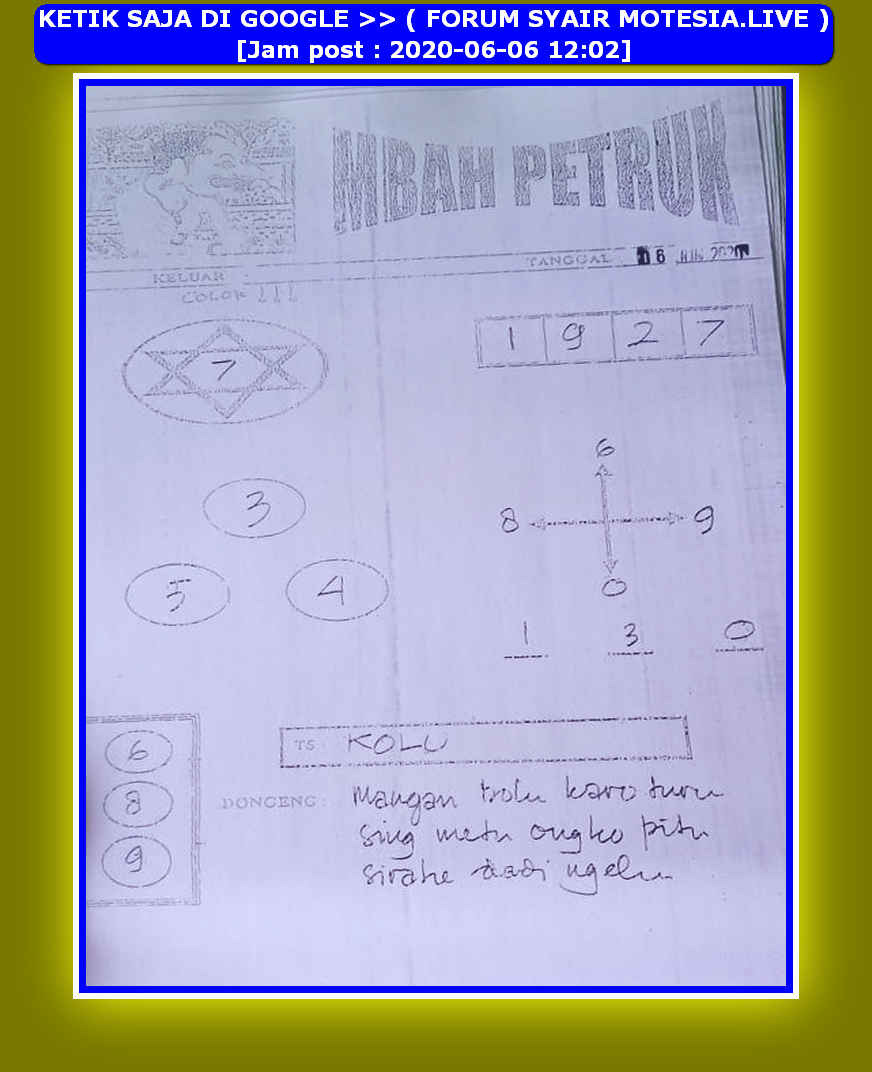 KETIK SAJA DI GOOGLE >> ( FORUM SYAIR MOTESIA.LIVE )
[Jam post : 2020-06-06 12:02]
MBAH PETRUK
TANGGAL : 06 JUN 2020
KELUAR :
COLOK !!!
7
1 9 2 7
6
3
8 9
5 4
0
1 3 0
6
8
9
TS : KOLU
DONGENG : Mangan bolu karo turu
sing metu ongko pitu
sirahe dadi ngelu